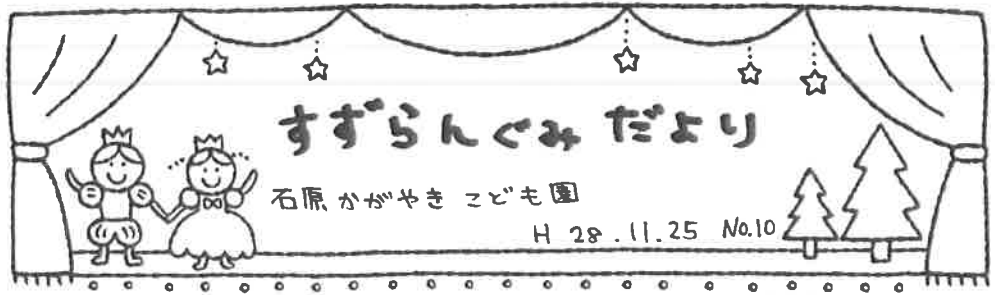 すずらんぐみ だより
石原かがやきこども園
H 28.11.25 No.10